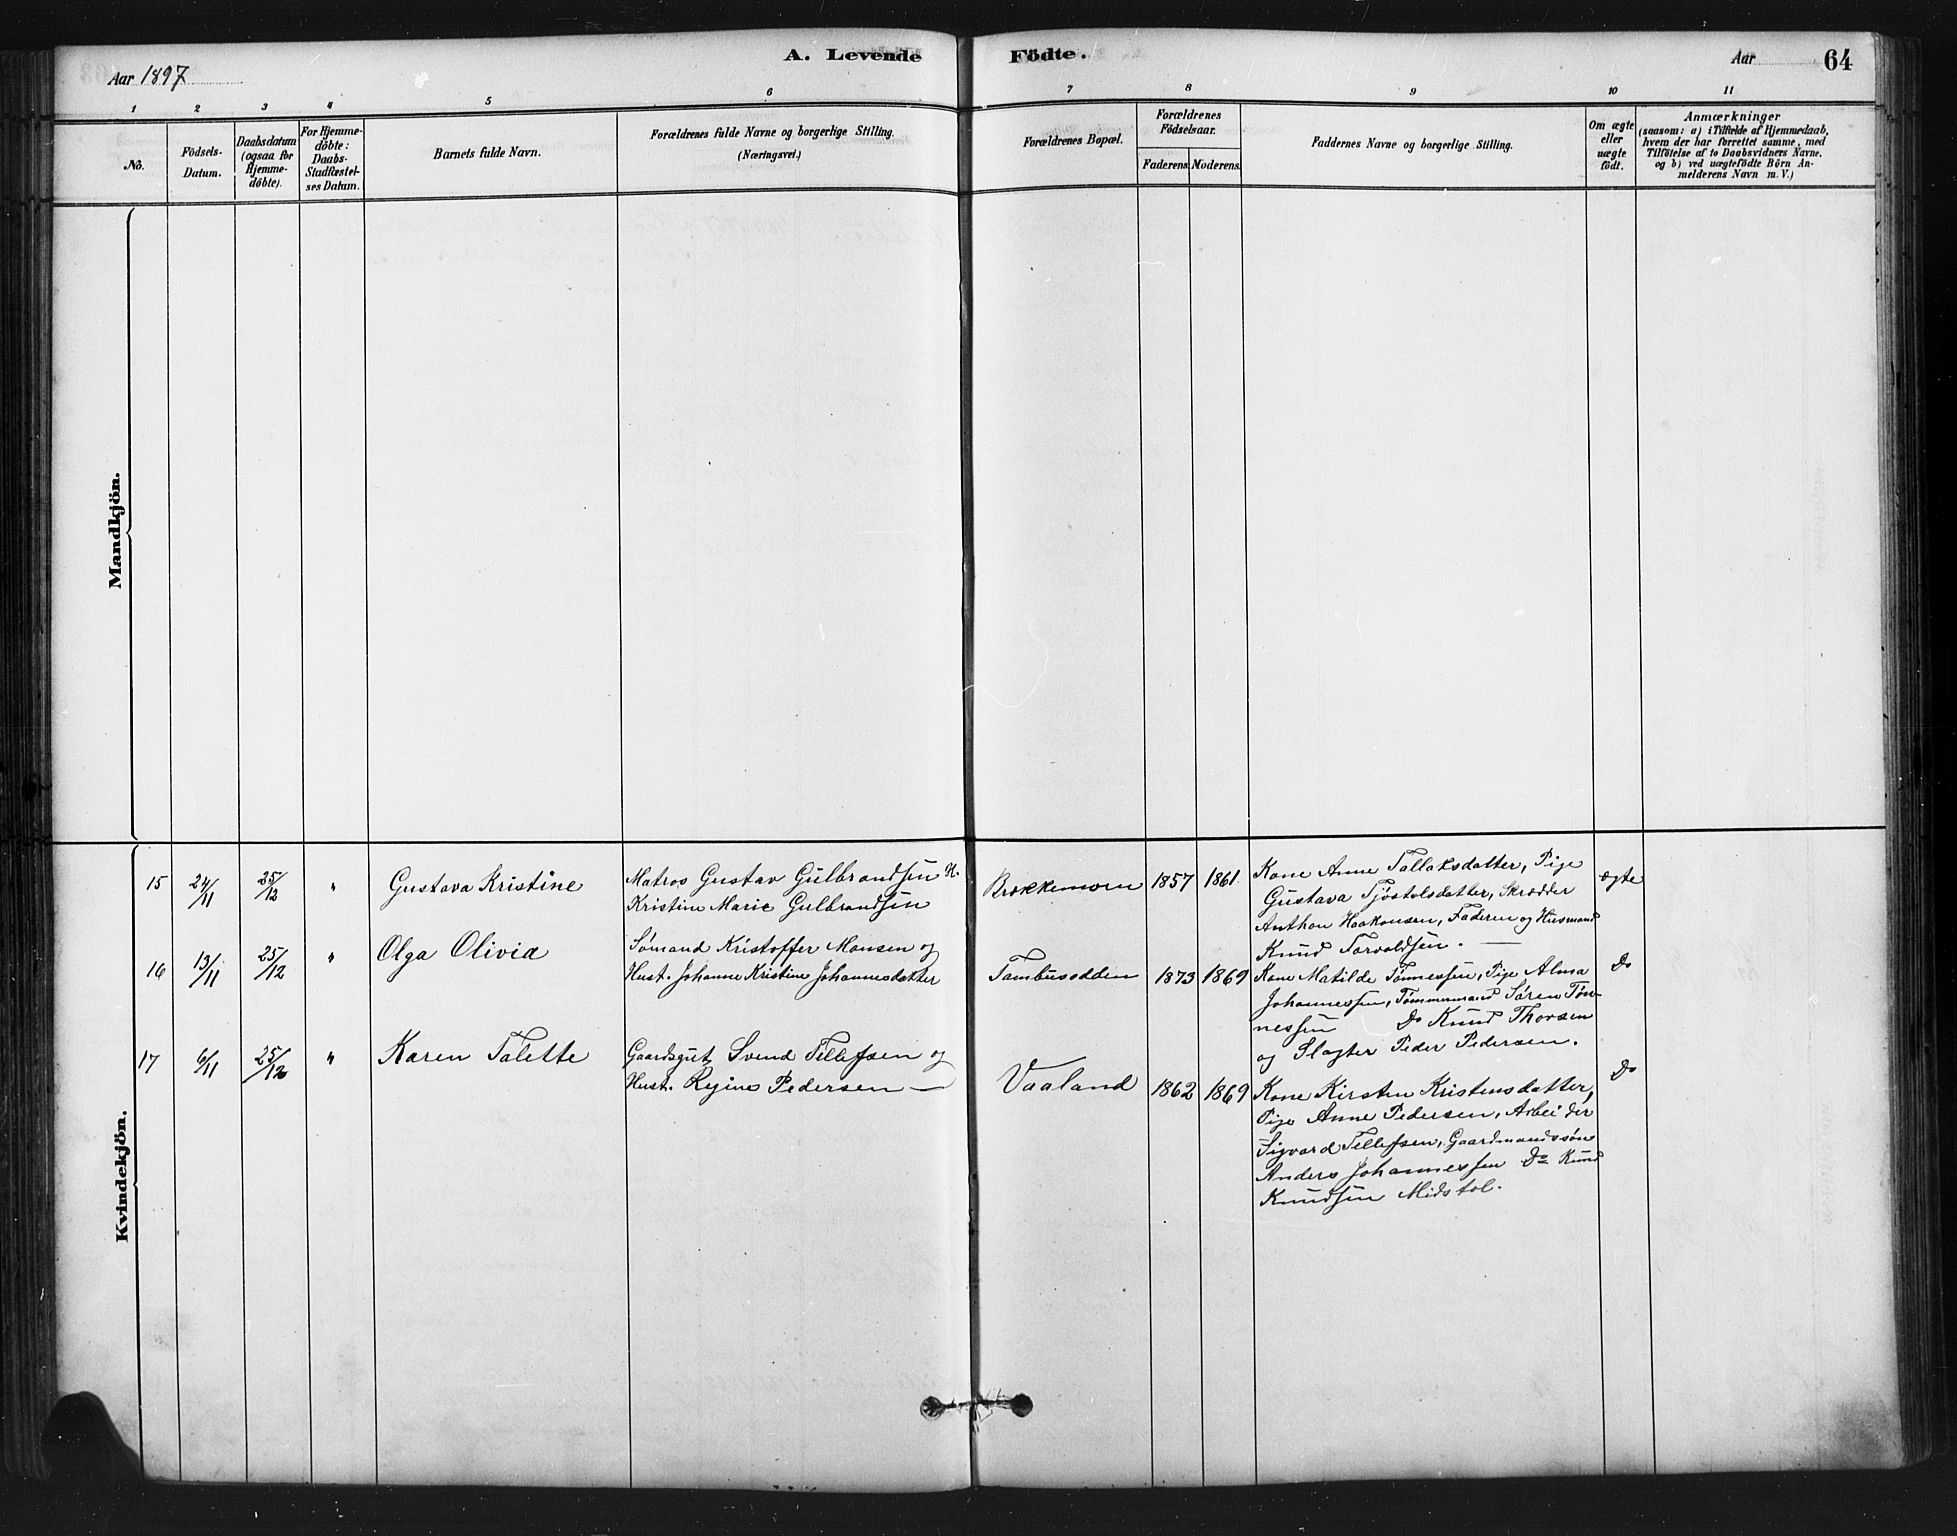 A. Levende Födte.
Aar 1897
Aar
64
1 2 3 4 5 6 7 8 9 10 11
No.
Födsels-
Datum.
Daabsdatum
(ogsaa for
Hjemme-
döbte).
For Hjemme-
döbte:
Daabs-
Stadfæstel-
ses Datum.
Barnets fulde Navn.
Forældrenes fulde Navne og borgerlige Stilling.
(Næringsvei.)
Forældrenes Bopæl.
Forældrenes
Födselsaar.
Faderens. Moderens.
Faddernes Navne og borgerlige Stilling.
Om ægte
eller
uægte
födt.
Anmærkninger
(saasom: a) i Tilfælde af Hjemmedaab,
hvem der har forrettet samme, med
Tilföielse af to Daabsvidners Navne,
og b) ved uægtefödte Börn An-
melderens Navn m. V.)
Mandkjön.
Kvindekjön.
15 24/11 25/12 " Gustava Kristine
Matros Gustav Gulbrandsen H.
Kristine Marie Gulbrandsen
Brækkemoen 1857 1861
Kone Anne Tallaksdatter, Pige
Gustava Tjöstolsdatter, Skrædder
Anthon Haakonsen, Faderen og Husmand
Knud Torvaldsen. —
ægte
16 13/11 25/12 " Olga Olivia
Sömand Kristoffer Monsen og
Hust. Johanne Kristine Johannesdatter
Tambusodden 1873 1869
Kone Matilde Tönnessen, Pige Alma
Johannessen, Tömmermand Sören Tön-
nessen Do Knud Thorsen
og Slagter Peder Pedersen.
Do
17 6/11 25/12 " Karen Talette
Gaardsgut Svend Tellefsen og
Hust. Regine Pedersen —
Vaaland 1862 1869
Kone Kirsten Kristensdatter,
Pige Anne Pedersen, Arbeider
Sigvard Tellefsen, Gaardmandssön
Anders Johannessen Do Knud
Knudsen Midstol.
Do